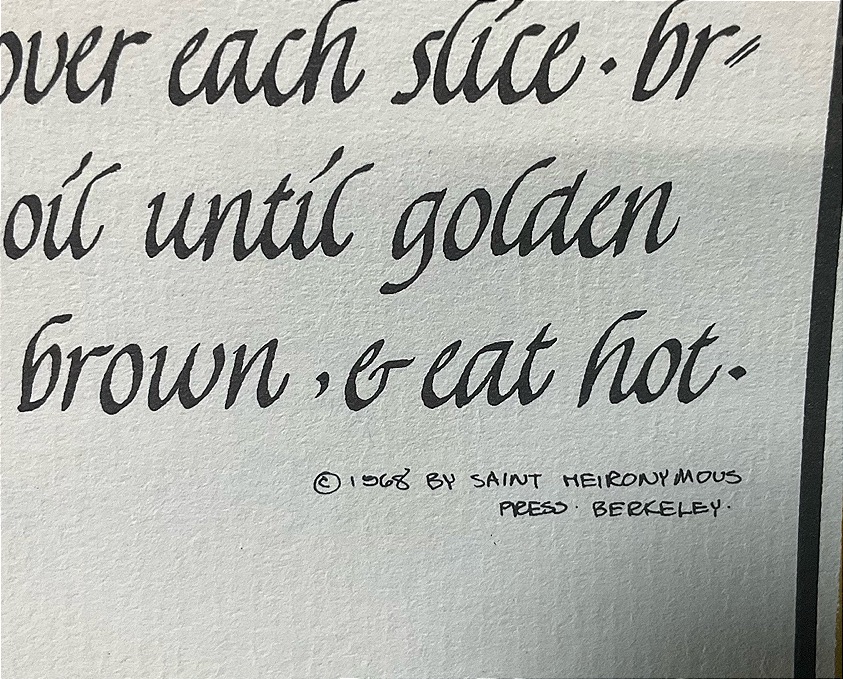 over each slice · br=
oil until golden
brown , & eat hot.
© 1968 BY SAINT HEIRONYMOUS
PRESS · BERKELEY.